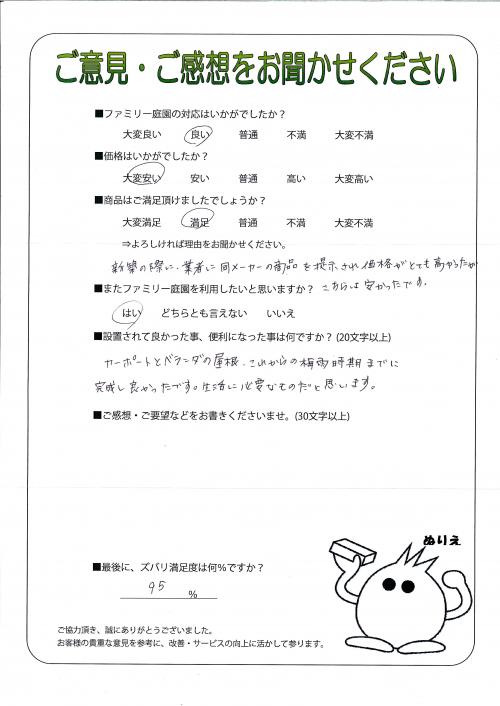 ご意見・ご感想をお聞かせください
■ファミリー庭園の対応はいかがでしたか？
大変良い 良い 普通 不満 大変不満
■価格はいかがでしたか？
大変安い 安い 普通 高い 大変高い
■商品はご満足頂けましたでしょうか？
大変満足 満足 普通 不満 大変不満
⇒よろしければ理由をお聞かせください。
新築の際に、業者に同メーカーの商品を提示され価格がとても高かったが
こちらは安かったです。
■またファミリー庭園を利用したいと思いますか？
はい どちらとも言えない いいえ
■設置されて良かった事、便利になった事は何ですか？(20文字以上)
カーポートとベランダの屋根、これからの梅雨時期までに
完成し良かったです。生活に必要なものだと思います。
■ご感想・ご要望などをお書きくださいませ。(30文字以上)
ぬりえ
■最後に、ズバリ満足度は何％ですか？
95 ％
ご協力頂き、誠にありがとうございました。
お客様の貴重な意見を参考に、改善・サービスの向上に活かして参ります。